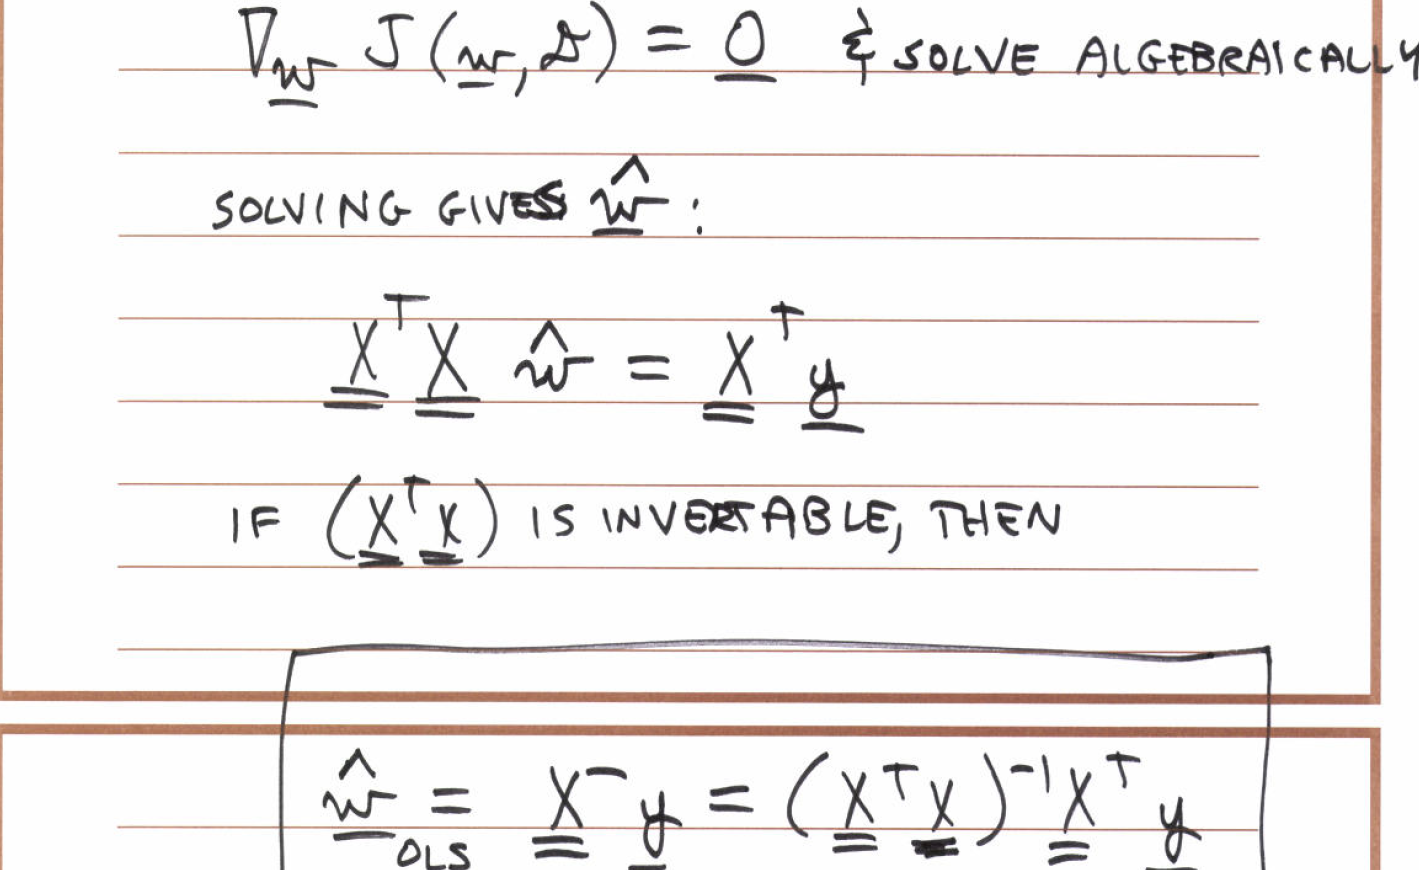 ∇_w J(w, 𝒟) = 0 & SOLVE ALGEBRAICALLY
SOLVING GIVES ŵ :
XᵀX ŵ = Xᵀ y
IF (XᵀX) IS INVERTABLE, THEN
ŵ_OLS = X⁻ y = (XᵀX)⁻¹ Xᵀ y